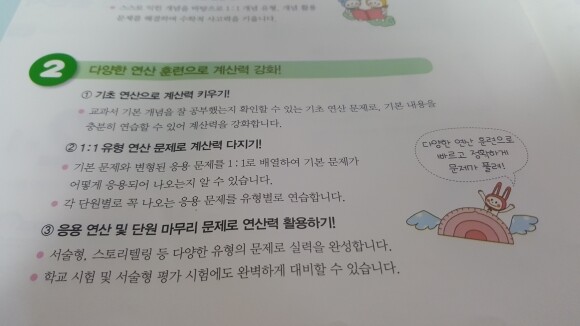 스스로 익힌 개념을 바탕으로 1:1 개념 유형, 개념 활용
문제를 해결하여 수학적 사고력을 기릅니다.
2 다양한 연산 훈련으로 계산력 강화!
① 기초 연산으로 계산력 키우기!
• 교과서 기본 개념을 잘 공부했는지 확인할 수 있는 기초 연산 문제로, 기본 내용을
충분히 연습할 수 있어 계산력을 강화합니다.
② 1:1 유형 연산 문제로 계산력 다지기!
• 기본 문제와 변형된 응용 문제를 1:1로 배열하여 기본 문제가
어떻게 응용되어 나오는지 알 수 있습니다.
• 각 단원별로 꼭 나오는 응용 문제를 유형별로 연습합니다.
다양한 연산 훈련으로
빠르고 정확하게
문제가 풀려!
③ 응용 연산 및 단원 마무리 문제로 연산력 활용하기!
• 서술형, 스토리텔링 등 다양한 유형의 문제로 실력을 완성합니다.
• 학교 시험 및 서술형 평가 시험에도 완벽하게 대비할 수 있습니다.